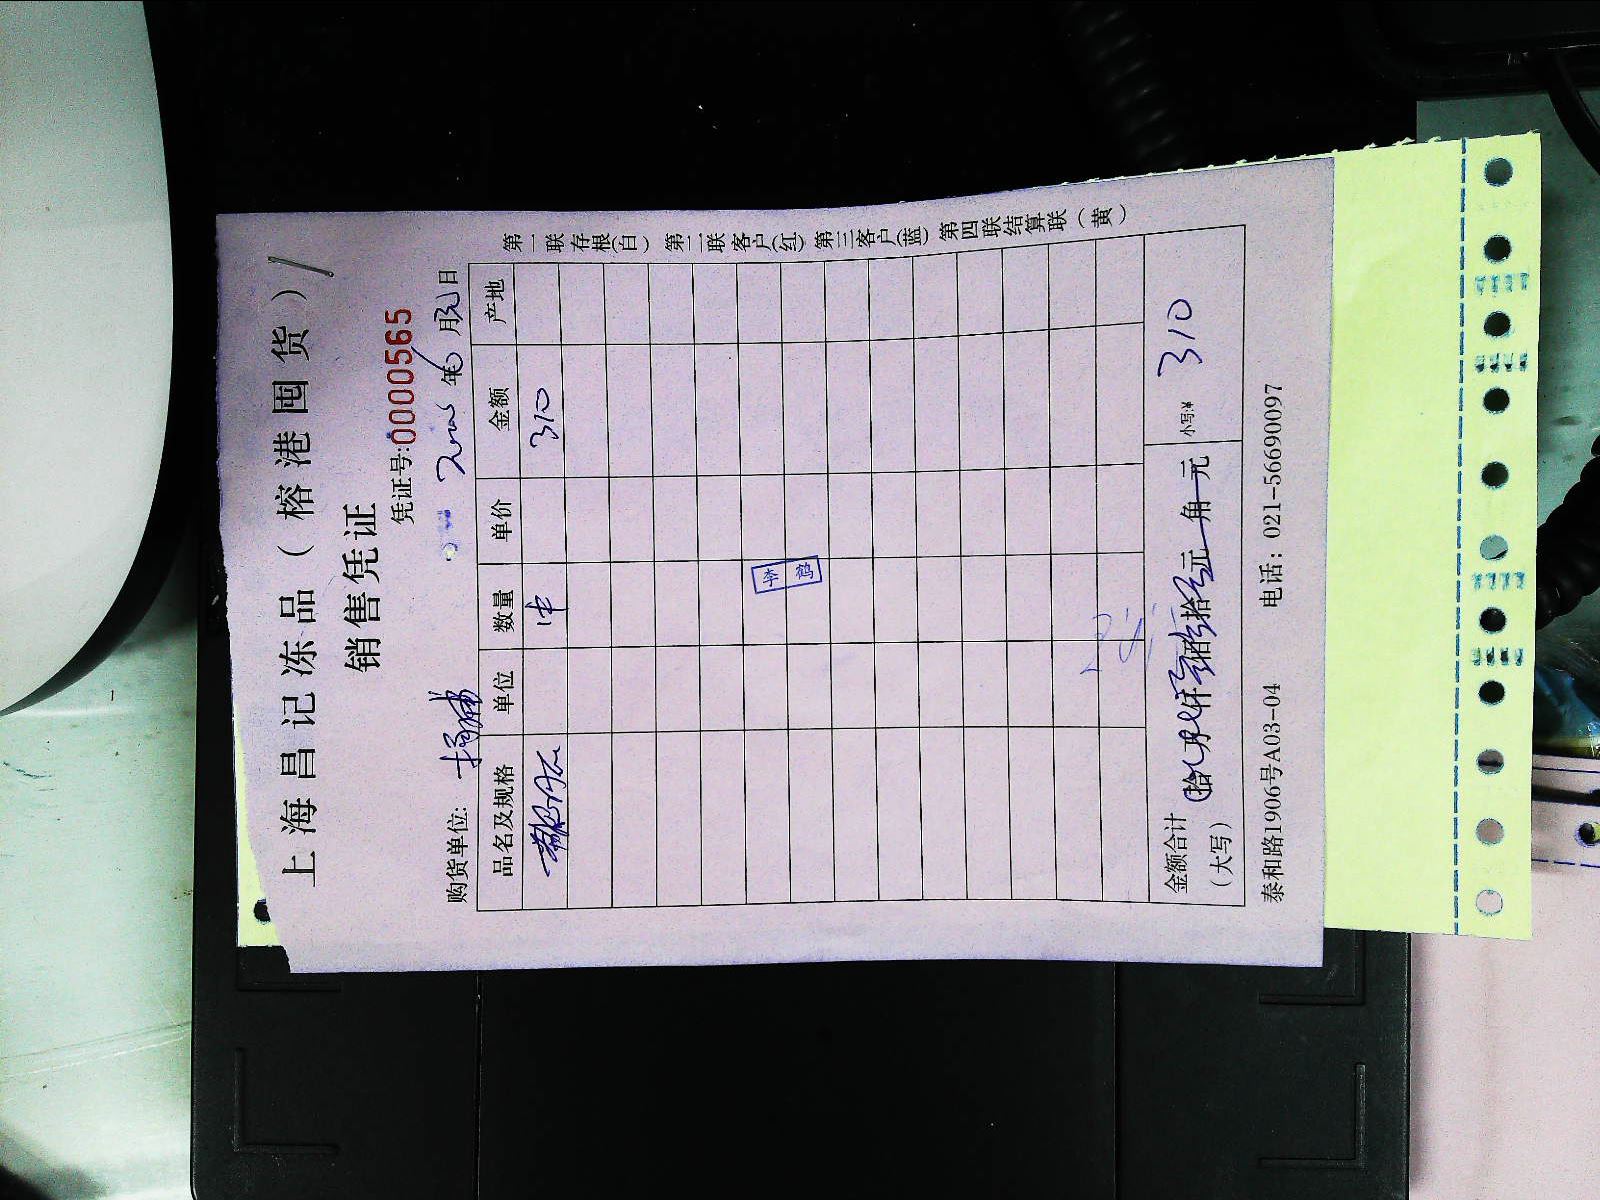 上海昌记冻品（榕港囤货）
销售凭证
凭证号:0000565
年6月 日
购货单位: 杨浦
品名及规格 单位 数量 单价 金额 产地
310
李
鹤
金额合计（大写） 拾 万 仟 佰 拾 元 角 元 小写:¥ 310
泰和路1906号A03-04 电话：021-56690097
第一联存根(白) 第二联客户(红) 第三客户(蓝) 第四联结算联（黄）